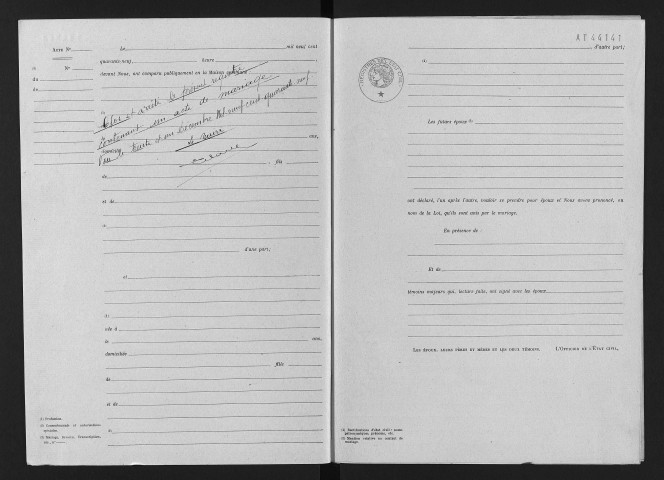 Acte N°
Le mil neuf cent
quarante-neuf, heure ;
et N°
devant Nous, ont comparu publiquement en la Maison commune :
du
de
Clos et arrêté le présent registre
contenant un acte de mariage
Le trente et un décembre mil neuf cent quarante neuf
le Maire
à
ans,
domicilié
fils
de
et de
d'une part;
et
à
née à
le ans,
domiciliée
fille
de
et de
de
(1) Profession.
(2) Consentements et autorisations
(3) Mariage, Divorce, Transcription,
AT44141
d'autre part;
REGISTRES DE L'ETAT CIVIL
Les futurs époux
ont déclaré, l'un après l'autre, vouloir se prendre pour époux et Nous avons prononcé, au
nom de la Loi, qu'ils sont unis par le mariage.
En présence de :
Et de
témoins majeurs qui, lecture faite, ont signé avec les époux
LES ÉPOUX, LEURS PÈRES ET MÈRES ET LES DEUX TÉMOINS. L'OFFICIER DE L'ÉTAT CIVIL,
(1) Rectifications d'état civil : noms
patronymiques, prénoms, etc.
(2) Mention relative au contrat de
mariage.